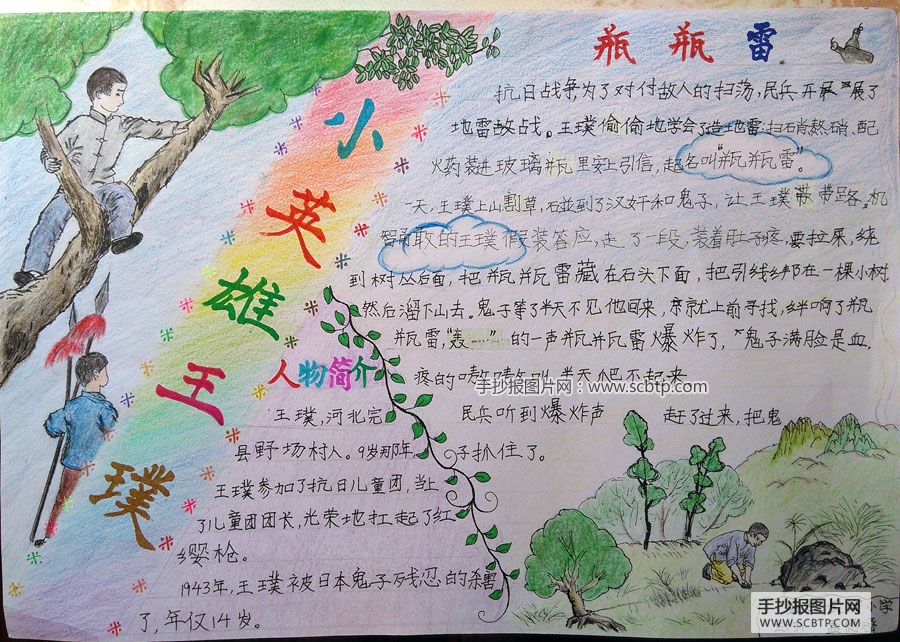 小英雄王璞
瓶瓶雷
抗日战争,为了对付敌人的扫荡,民兵开展了
地雷敌战。王璞偷偷地学会了造地雷,扫硝熬硝、配
火药装进玻璃瓶里安上引信,起名叫“瓶瓶雷”。
一天,王璞上山割草,碰到了汉奸和鬼子,让王璞带带路,机
智勇敢的王璞假装答应,走了一段,装着肚子疼,要拉屎,绕
到树丛后面,把瓶瓶雷藏在石头下面,把引线绑在一棵小树
然后溜下山去。鬼子等了半天不见他回来,就上前寻找,绊响了瓶
瓶雷,“轰……”的一声瓶瓶雷爆炸了,鬼子满脸是血.
疼的嗷嗷叫,半天爬不起来
民兵听到爆炸声 赶了过来,把鬼
子抓住了。
人物简介
王璞,河北完
县野场村人。9岁那年,
王璞参加了抗日儿童团,当上
了儿童团团长,光荣地扛起了红
缨枪。
1943年,王璞被日本鬼子残忍的杀害
了,年仅14岁。
手抄报图片网:www.scbtp.com
小学
手抄报图片网
WWW.SCBTP.COM